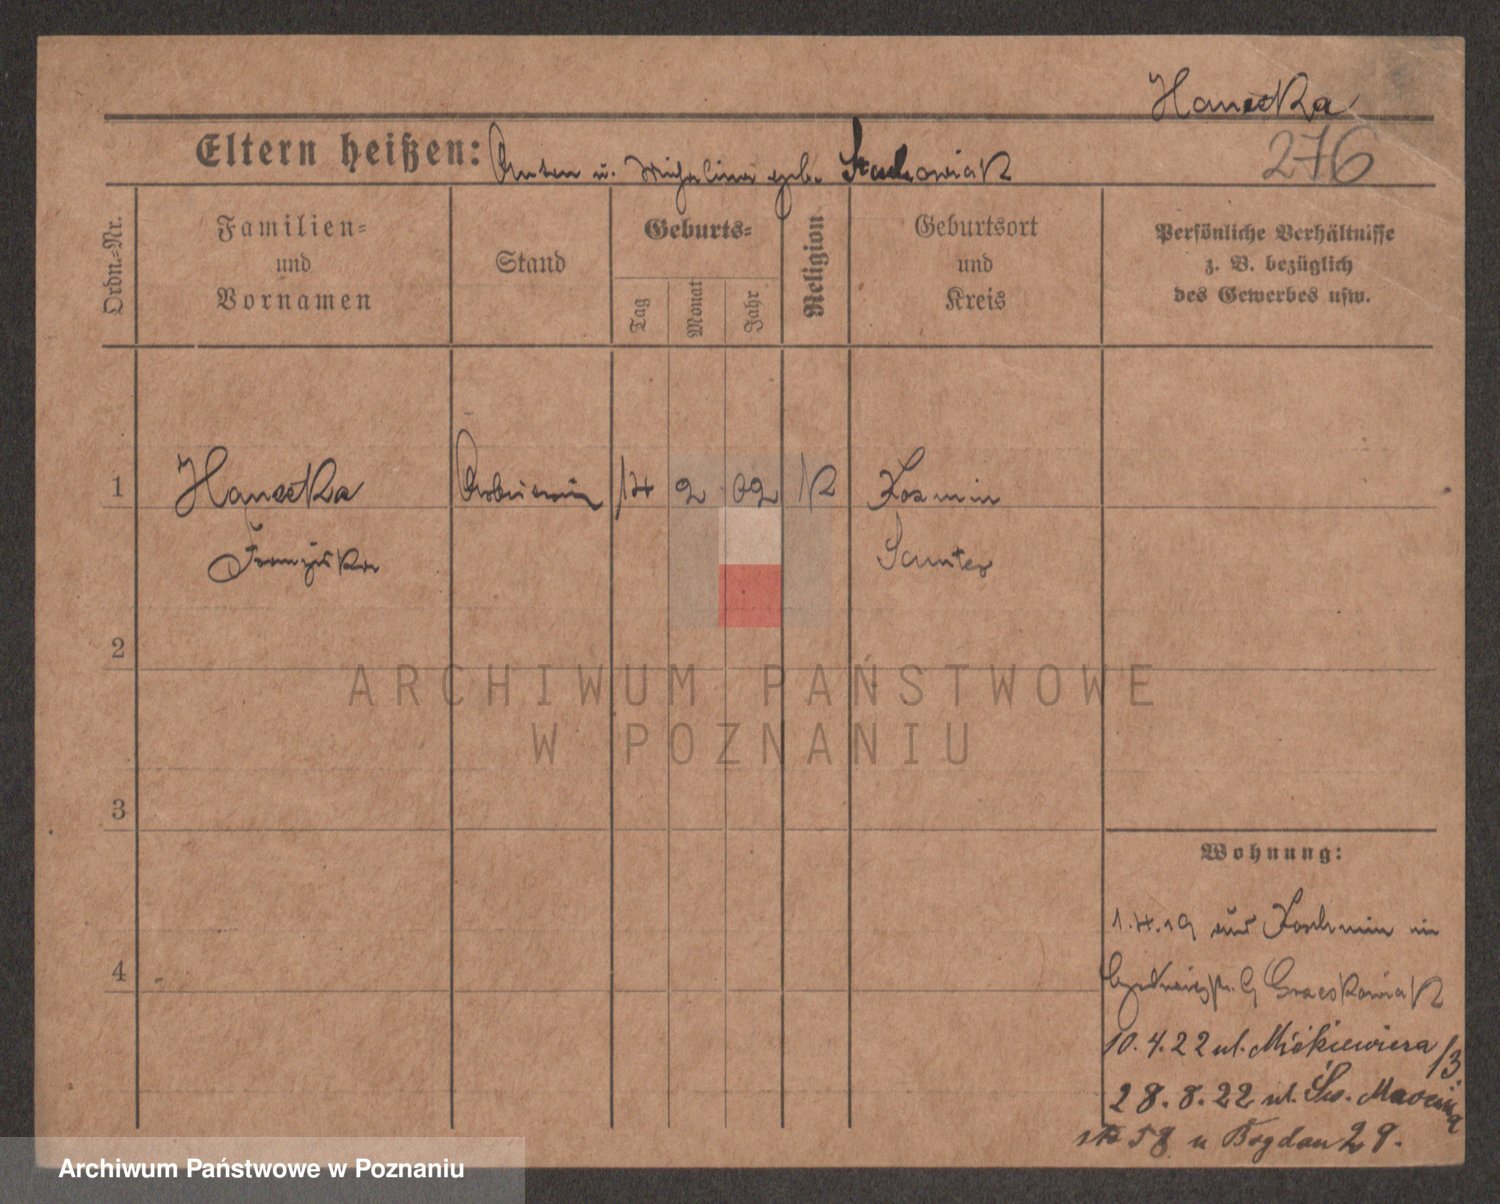 Hanecka
Eltern heißen: Anton u. Michalina geb. Stachowiak
276
Ordn.-Nr.
Familien=
und
Vornamen
Stand
Geburts=
Tag
Monat
Jahr
Religion
Geburtsort
und
Kreis
Persönliche Verhältnisse
z. B. bezüglich
des Gewerbes usw.
1
Hanecka
Franziska
Arbeiterin
14
2
02
K
Kosmin
Samter
2
3
4
Wohnung:
1.4.19 aus Koschmin in
G
10.4.22 ul. Mickiewicza /3
28.8.22 ul. Św. Marcina
58 u Bogdan 29.
ARCHIWUM PAŃSTWOWE
W POZNANIU
Archiwum Państwowe w Poznaniu